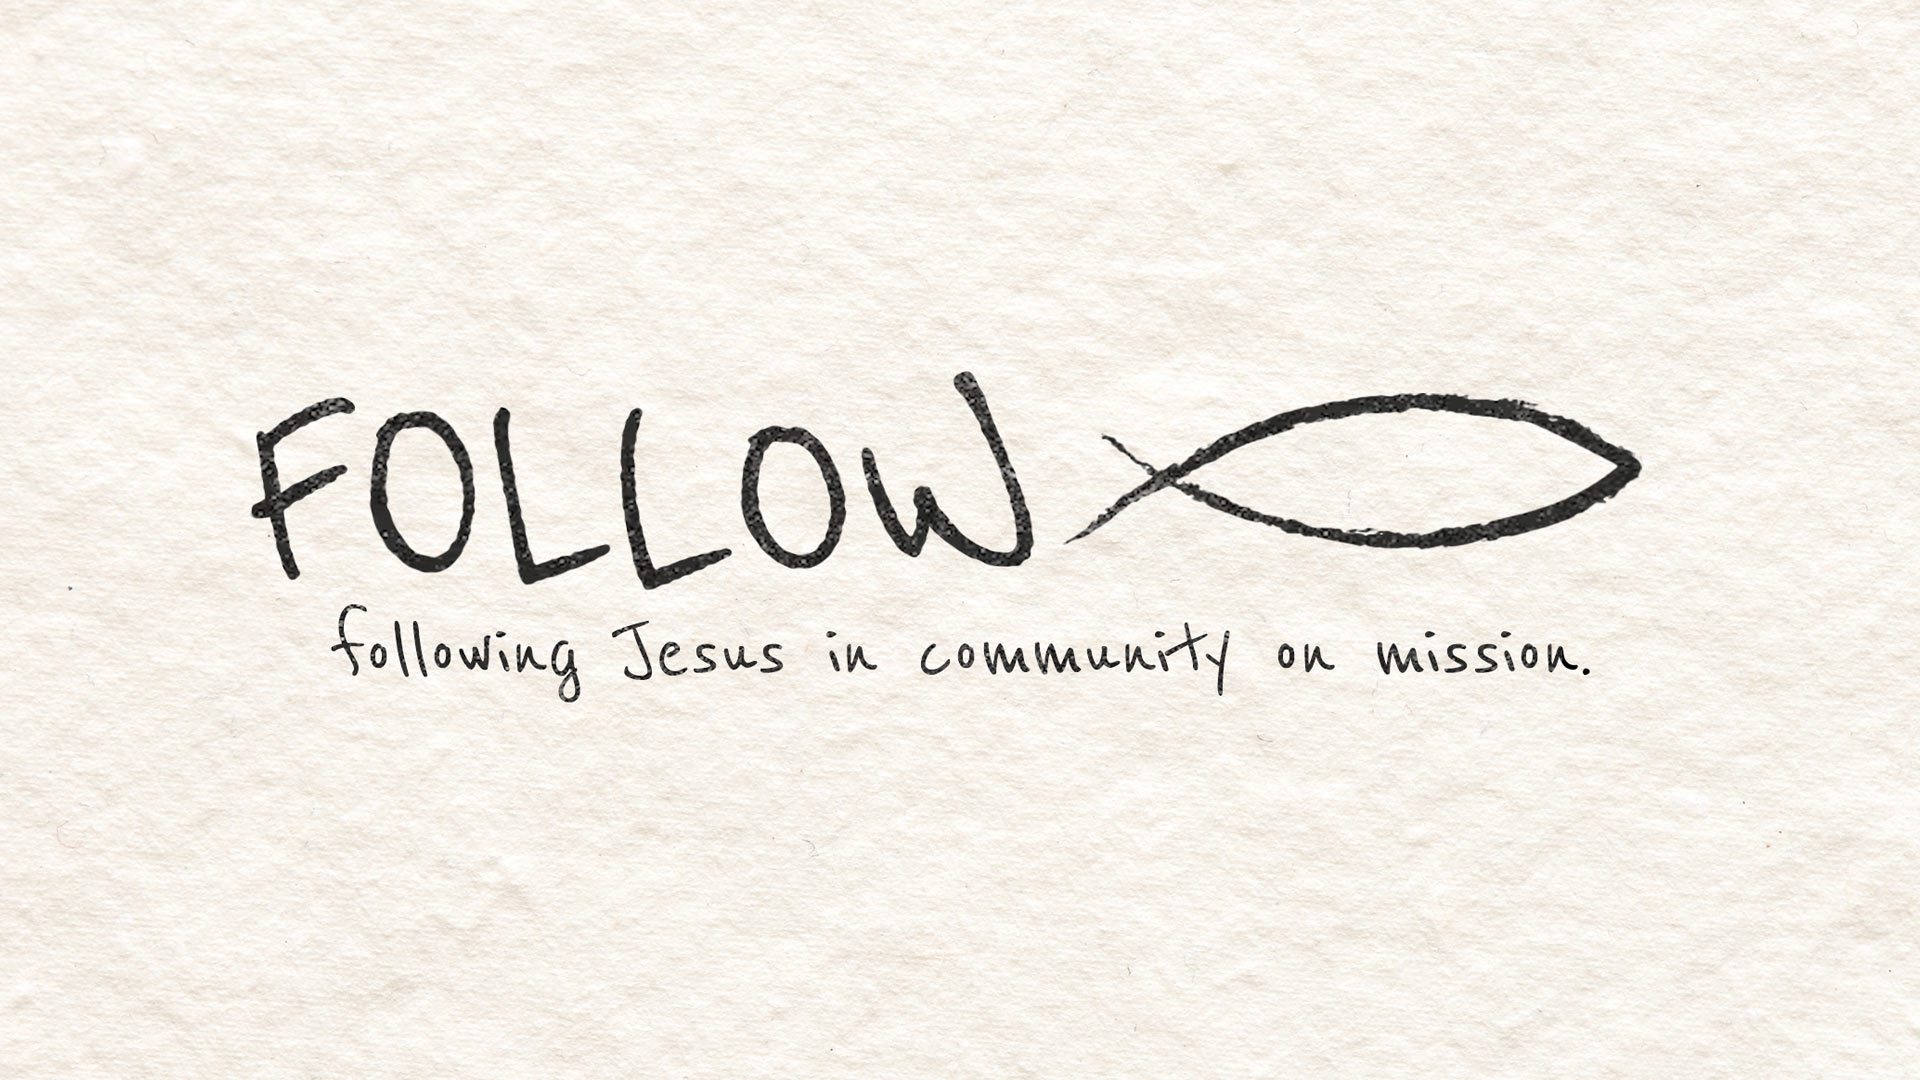 FOLLOW
following Jesus in community on mission.